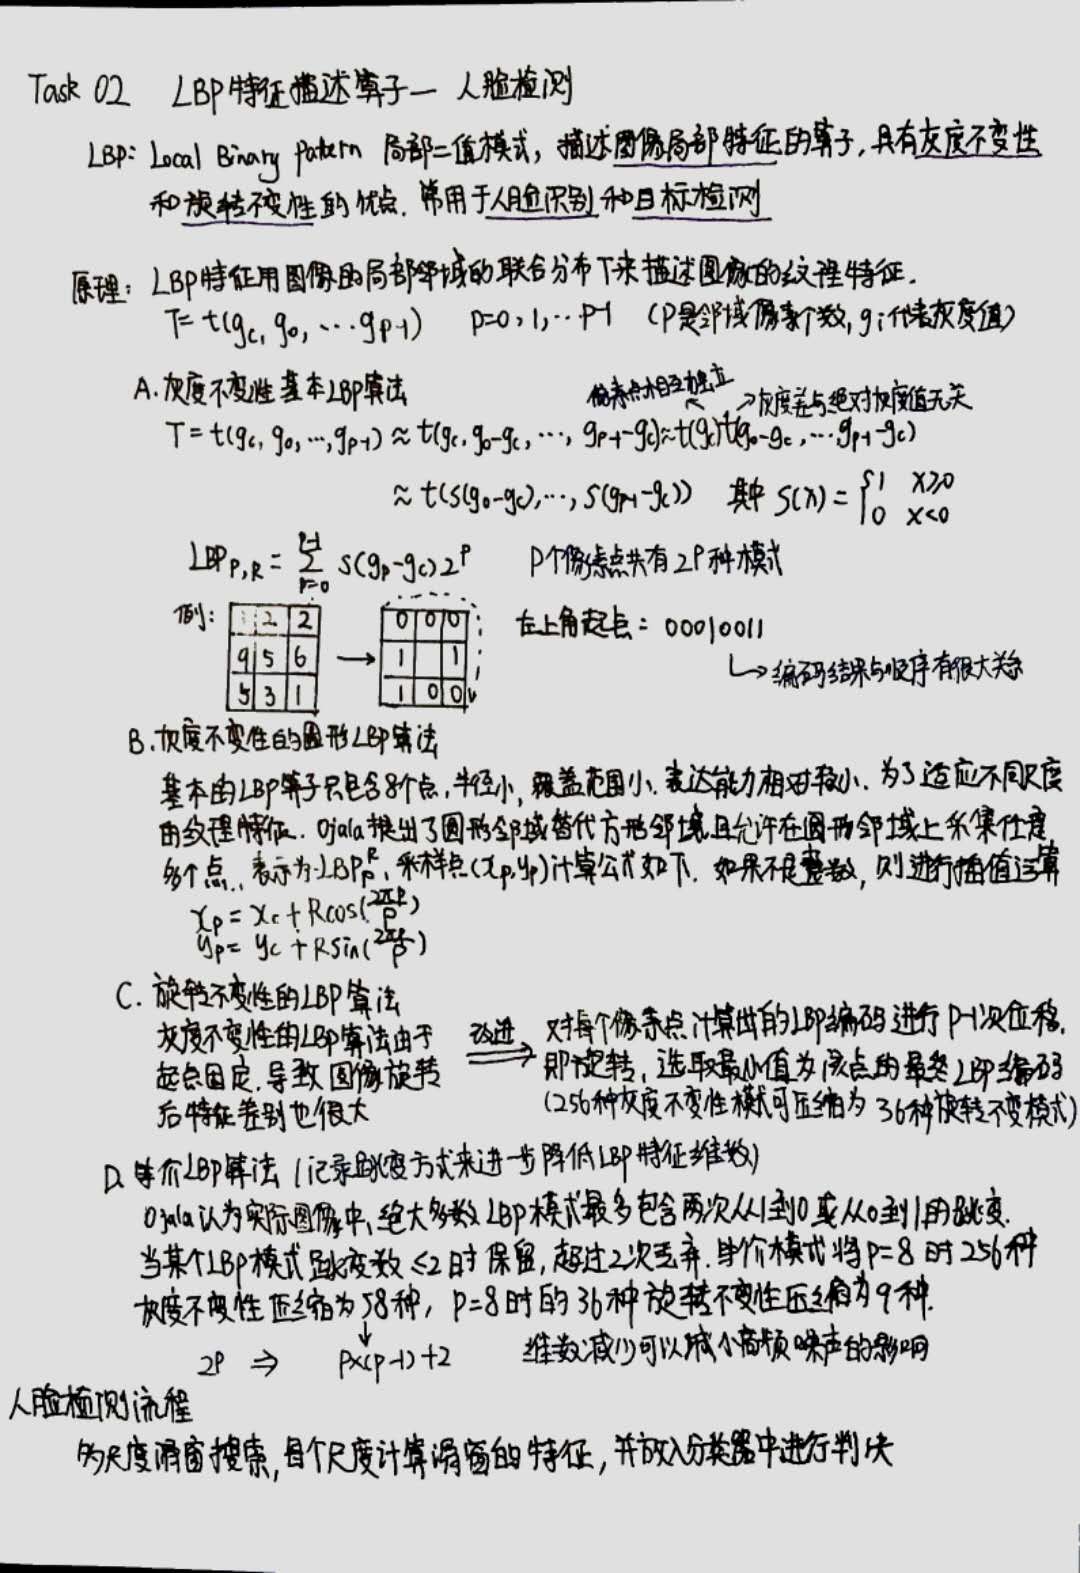 Task 02 LBP特征描述算子— 人脸检测
LBP: Local Binary Patern 局部二值模式，描述图像局部特征的算子，具有灰度不变性
和旋转不变性的优点．常用于人脸识别和目标检测
原理： LBP特征用图像的局部邻域的联合分布T来描述图像的纹理特征．
T= t(gc, g0, ⋯gp-1) p=0，1，⋯P-1 （P是邻域像素个数，gi代表灰度值）
A. 灰度不变性基本LBP算法
像素点相互独立 ↖ ↗灰度差与绝对灰度值无关
T = t(gc, g0, ⋯, gp-1) ≈ t(gc, g0-gc, ⋯, gp-1-gc)≈t(gc)t(g0-gc, ⋯gp-1-gc)
≈ t(s(g0-gc),⋯, s(gp-1-gc)) 其中 S(x) = {1 x≥0
0 x<0
LBP P,R = Σ(p=0, P-1) s(gp-gc)2^p P个像素点共有2P种模式
例：
1 2 2 0 0 0
9 5 6 → 1 1
5 3 1 1 0 0
左上角起点： 00010011
↳ 编码结果与顺序有很大关系
B. 灰度不变性的圆形LBP算法
基本的LBP算子只包含8个点，半径小，覆盖范围小．表达能力相对较小．为了适应不同尺度
的纹理特征．Ojala提出了圆形邻域替代方形邻域，且允许在圆形邻域上采集任意
多个点．，表示为LBP_P^R，采样点(xp,yp)计算公式如下．如果不是整数，则进行插值运算
xp = xc + Rcos(2πp/P)
yp = yc + Rsin(2πp/P)
C. 旋转不变性的LBP算法
灰度不变性的LBP算法由于
起点固定．导致图像旋转
后特征差别也很大
改进
⇒
对每个像素点计算出的LBP编码进行P-1次位移．
即旋转，选取最小值为该点的最终LBP编码
(256种灰度不变性模式可压缩为36种旋转不变模式)
D. 等价LBP算法（记录跳变方式来进一步降低LBP特征维数）
Ojala认为实际图像中，绝大多数LBP模式最多包含两次从1到0或从0到1的跳变．
当某个LBP模式跳变数≤2时保留，超过2次丢弃．等价模式将P=8时256种
灰度不变性压缩为58种，P=8时的36种旋转不变性压缩为9种．
↓
2P ⇒ P×(P-1)+2 维数减少可以减小高频噪声的影响
人脸检测流程
多尺度滑窗搜索，每个尺度计算滑窗的特征，并放入分类器中进行判决